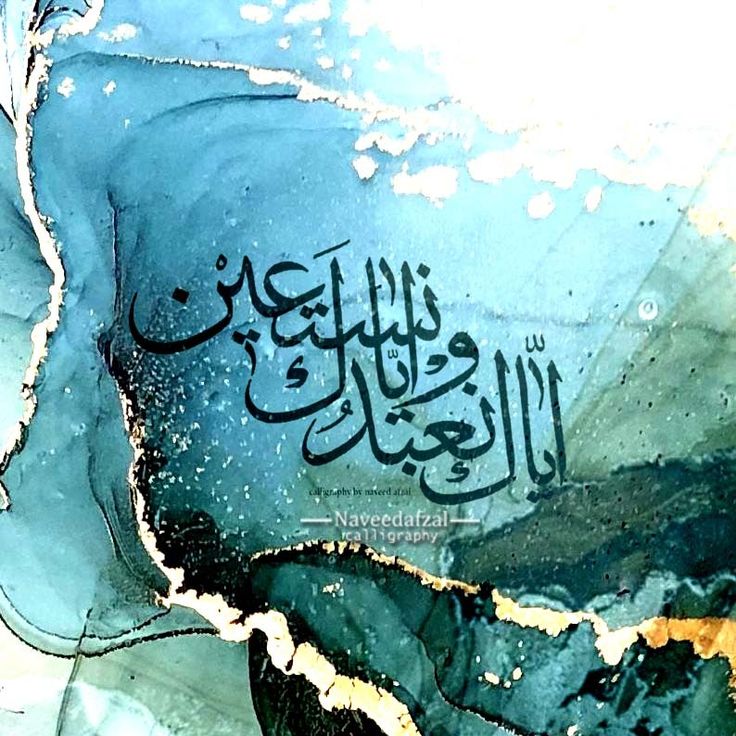 اياك نعبد
واياك نستعين
calligraphy by naveed afzal
Naveedafzal
calligraphy